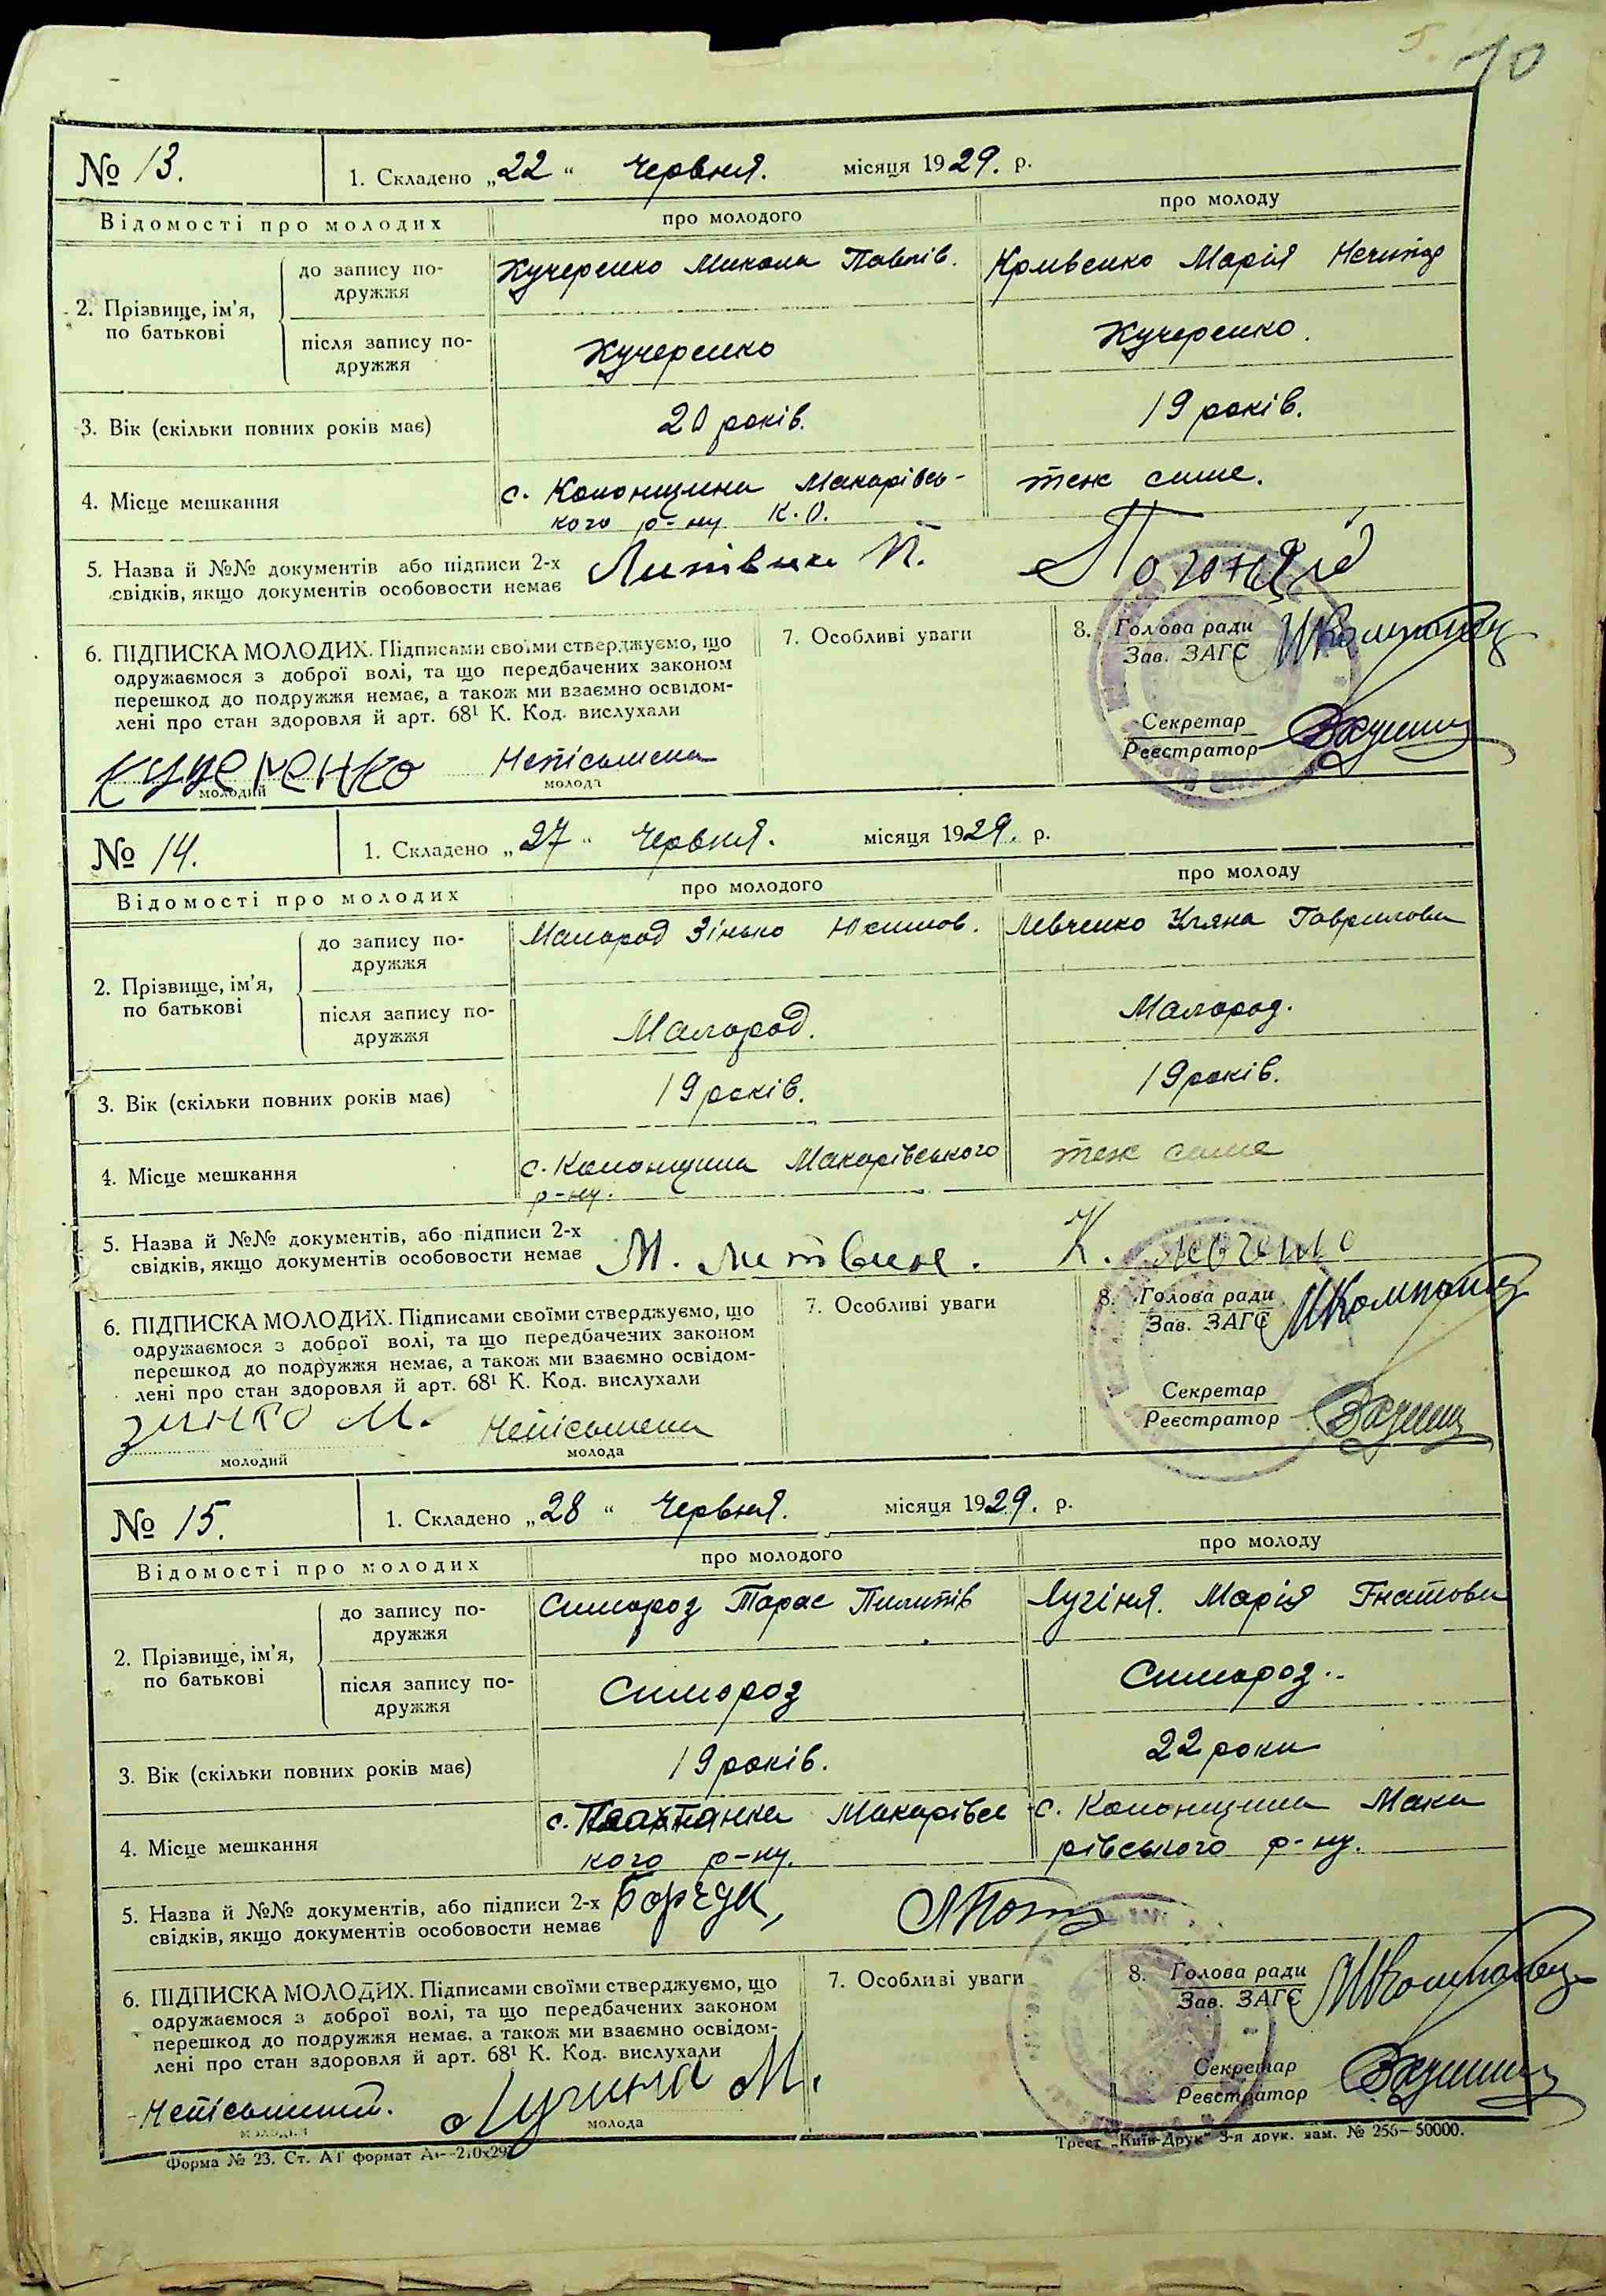 10
№ 13.
1. Складено „22“ Червня. місяця 1929. р.
Відомості про молодих
про молодого
про молоду
2. Прізвище, ім’я, по батькові
до запису подружжя
Кучеренко Микола Павлів.
Кривенко Марія Нечипор
після запису подружжя
Кучеренко
Кучеренко.
3. Вік (скільки повних років має)
20 років.
19 років.
4. Місце мешкання
с. Колонщина Макарівсь-
кого р-ну К.О.
теж саме.
5. Назва й №№ документів або підписи 2-х
свідків, якщо документів особовости немає
Литівин П.
6. ПІДПИСКА МОЛОДИХ. Підписами своїми стверджуємо, що
одружаємося з доброї волі, та що передбачених законом
перешкод до подружжя немає, а також ми взаємно освідом-
лені про стан здоровля й арт. 68¹ К. Код. вислухали
7. Особливі уваги
8. Голова ради
Зав. ЗАГС
Секретар
Реєстратор
Непісьмена
молодий
молода
№ 14.
1. Складено „27“ Червня. місяця 1929. р.
Відомості про молодих
про молодого
про молоду
2. Прізвище, ім’я, по батькові
до запису подружжя
Малород Зінько Юхимов.
Левченко Уляна Гаврилови
після запису подружжя
Малород.
Малород.
3. Вік (скільки повних років має)
19 років.
19 років.
4. Місце мешкання
с. Колонщина Макарівського
р-ну.
теж саме
5. Назва й №№ документів, або підписи 2-х
свідків, якщо документів особовости немає
М. Литвин.
К. Левченко
6. ПІДПИСКА МОЛОДИХ. Підписами своїми стверджуємо, що
одружаємося з доброї волі, та що передбачених законом
перешкод до подружжя немає, а також ми взаємно освідом-
лені про стан здоровля й арт. 68¹ К. Код. вислухали
7. Особливі уваги
8. Голова ради
Зав. ЗАГС
Секретар
Реєстратор
Зинко М.
Непісьмена
молодий
молода
№ 15.
1. Складено „28“ Червня. місяця 1929. р.
Відомості про молодих
про молодого
про молоду
2. Прізвище, ім’я, по батькові
до запису подружжя
Симороз Тарас Пилипів
Лучіня. Марія Гнатови
після запису подружжя
Симороз
Симороз..
3. Вік (скільки повних років має)
19 років.
22 роки
4. Місце мешкання
с. Плахтянка Макарівсь
кого р-ну.
с. Колонщина Мака
рівського р-ну.
5. Назва й №№ документів, або підписи 2-х
свідків, якщо документів особовости немає
Борчук,
6. ПІДПИСКА МОЛОДИХ. Підписами своїми стверджуємо, що
одружаємося з доброї волі, та що передбачених законом
перешкод до подружжя немає, а також ми взаємно освідом-
лені про стан здоровля й арт. 68¹ К. Код. вислухали
7. Особливі уваги
8. Голова ради
Зав. ЗАГС
Секретар
Реєстратор
Непісьмений.
Лучина М.
молодий
молода
Форма № 23. Ст. АГ формат
Трест „Київ-Друк“ 3-я друк. зам. № 256—50000.